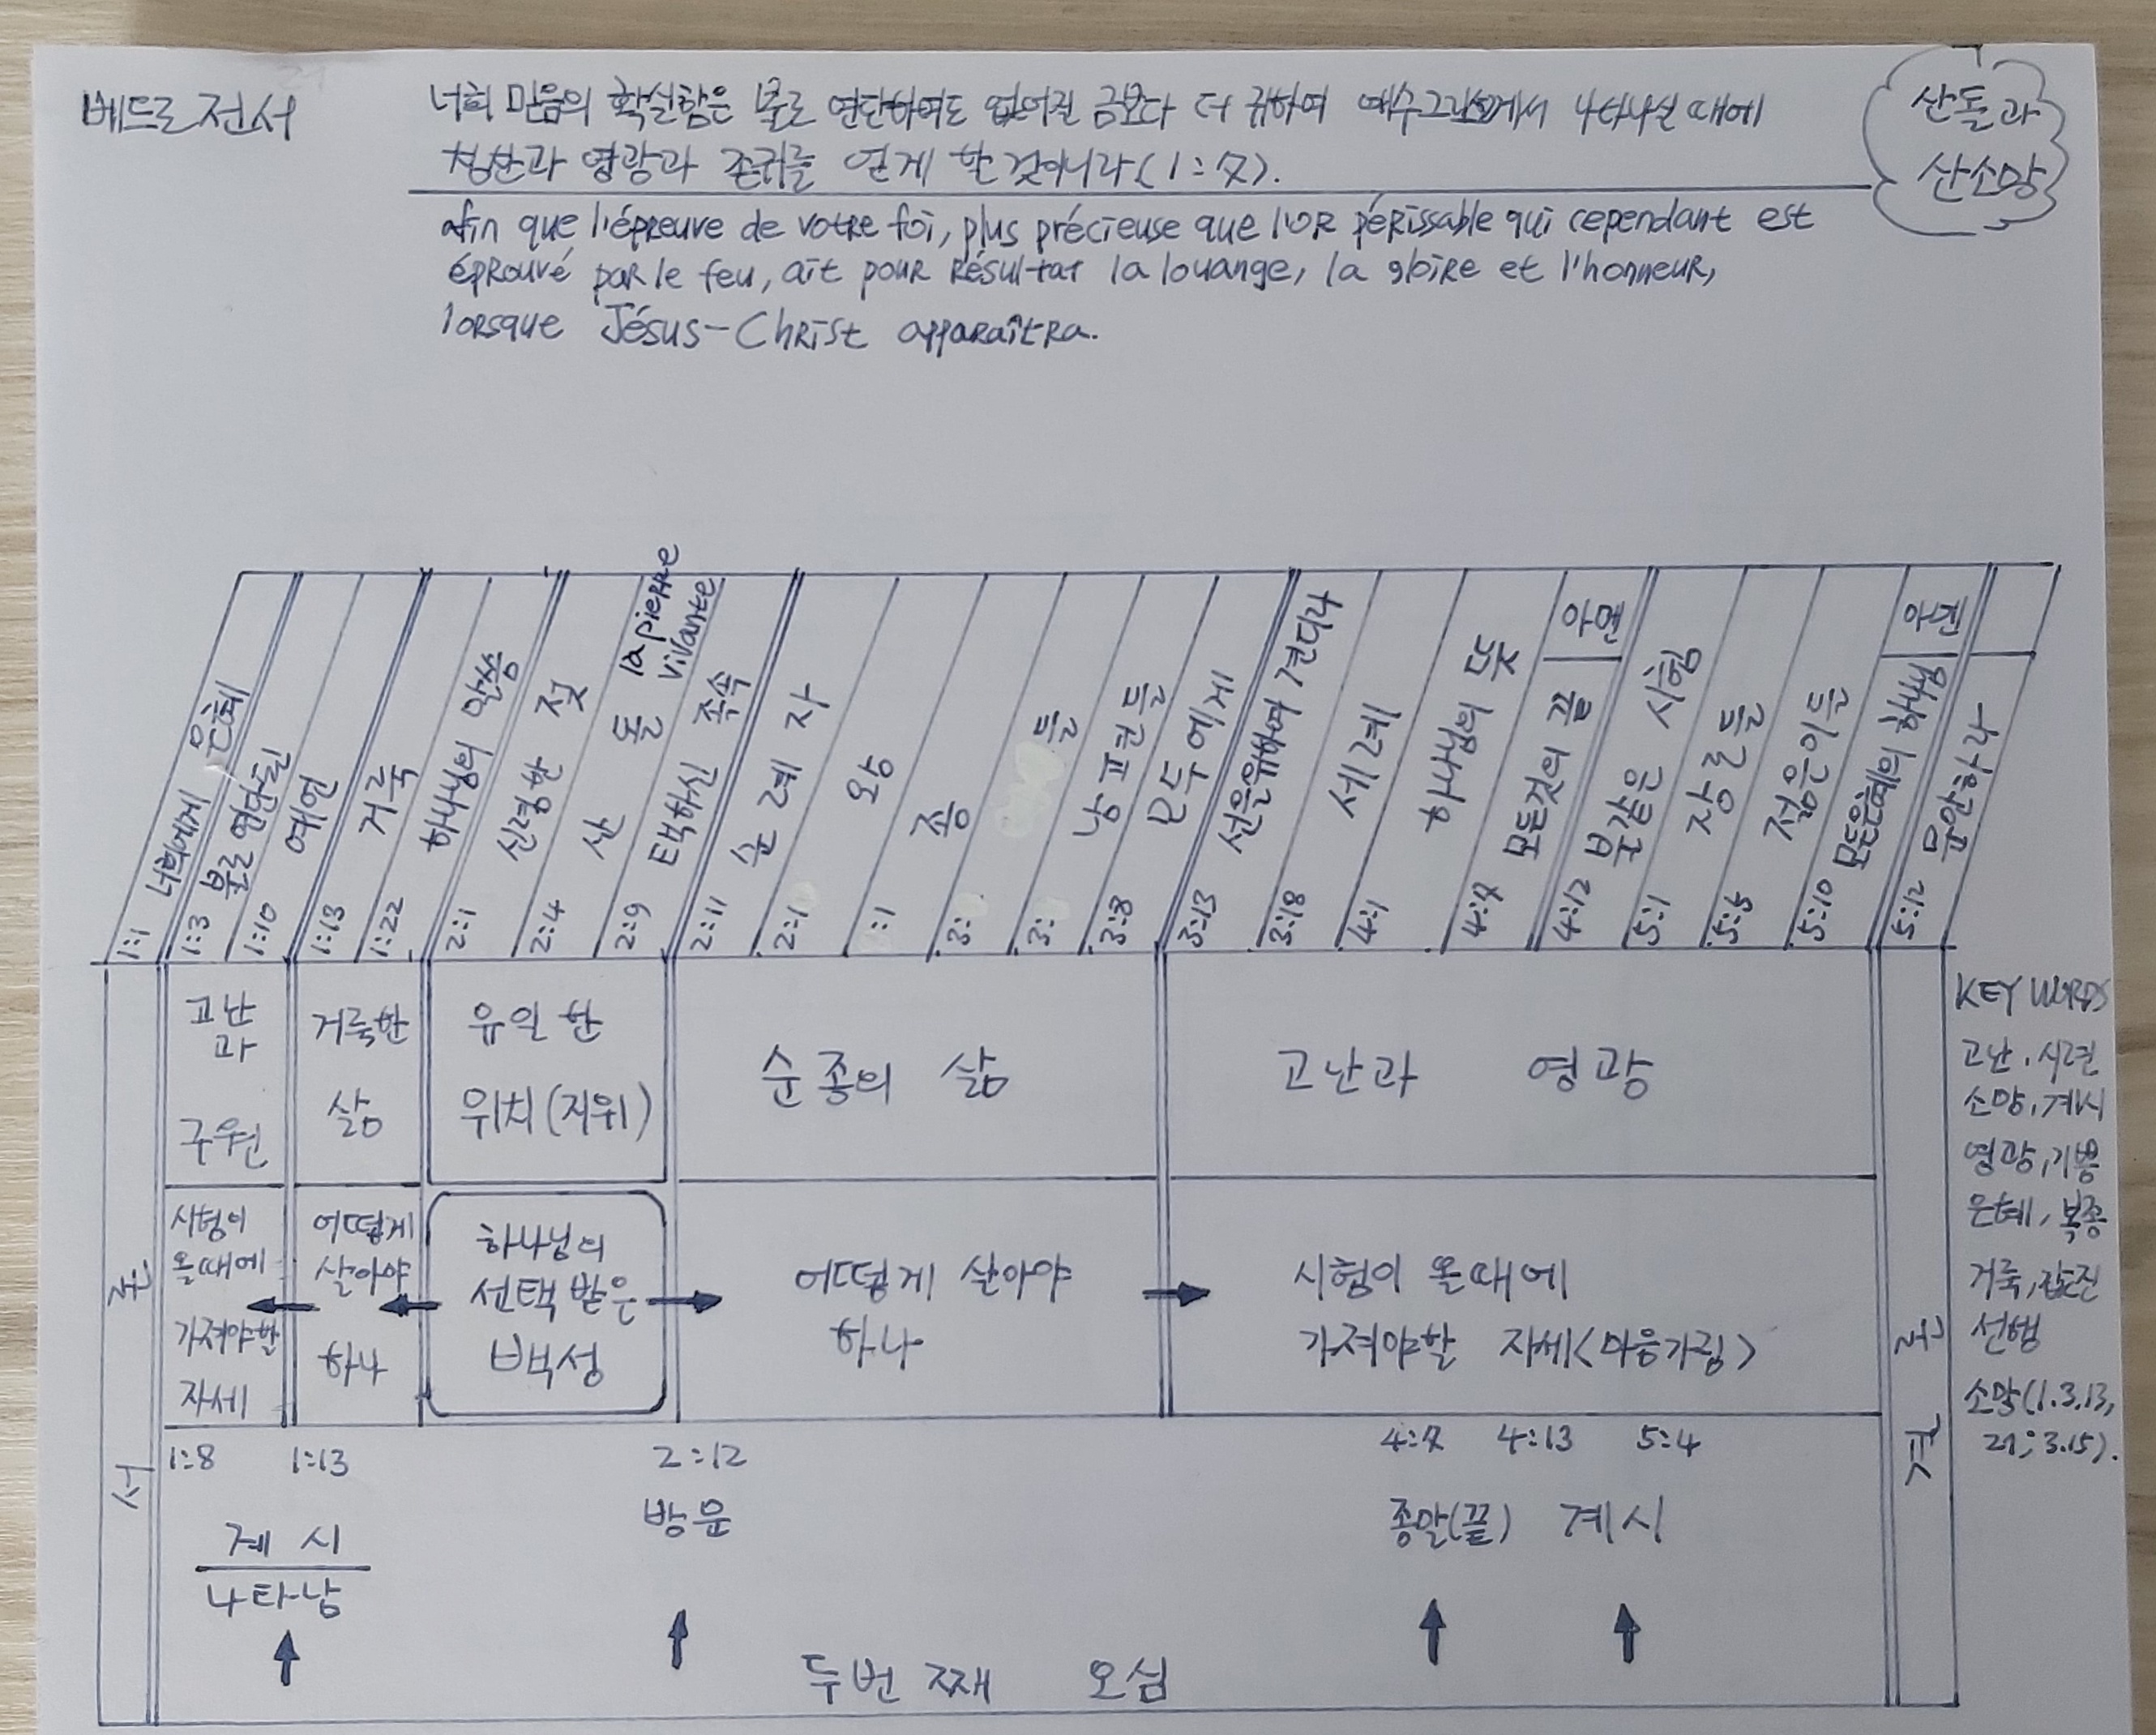 베드로전서
너희 믿음의 확실함은 불로 연단하여도 없어질 금보다 더 귀하여 예수그리스도께서 나타나실 때에
칭찬과 영광과 존귀를 얻게 할 것이니라(1:7).
산돌과
산소망
afin que l'épreuve de votre foi, plus précieuse que l'or périssable qui cependant est
éprouvé par le feu, ait pour résultat la louange, la gloire et l'honneur,
lorsque Jésus-Christ apparaîtra.
1:1 너희에게 은혜
1:3 불로 연단된
1:10 예언
1:13 거룩
1:22 하나님의 말씀
2:1 신령한 젖
2:4 산 돌 la pierre vivante
2:9 택하신 족속
2:11 순례자
2:1 왕
:1 종
3: 들
3: 남편된들
3:8 모두에게
3:13 선을 위하여 견디라
3:18 세례
4:1 하나님의 뜻
4:7 모든것의 끝 아멘
4:12 불같은 시험
5:1 장로들
5:5 젊은이들
5:10 모든은혜의 하나님 아멘
5:12 문안하라
서 론
고난
과
구원
거룩한
삶
유일한
위치(지위)
순종의 삶
고난과 영광
시험이
올때에
가져야할
자세
어떻게
살아야
하나
하나님의
선택받은
백성
어떻게 살아야
하나
시험이 올때에
가져야할 자세<마음가짐>
1:8 1:13 2:12 4:7 4:13 5:4
계시
나타남
방문
종말(끝) 계시
두번째 오심
결 론
KEY WORDS
고난, 시련
소망, 계시
영광, 기쁨
은혜, 복종
거룩, 값진
선행
소망(1.3.13,
21; 3.15).